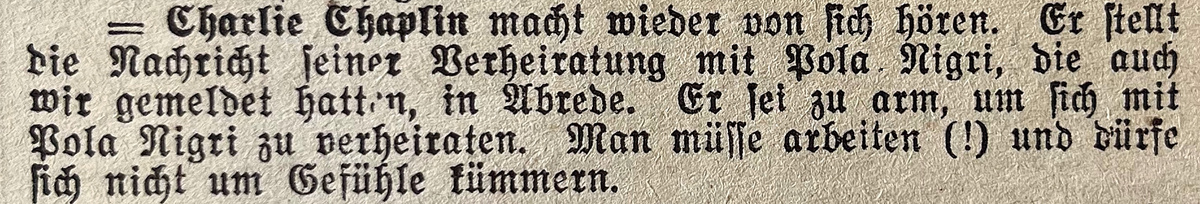 = Charlie Chaplin macht wieder von sich hören. Er stellt
die Nachricht seiner Verheiratung mit Pola Nigri, die auch
wir gemeldet hatten, in Abrede. Er sei zu arm, um sich mit
Pola Nigri zu verheiraten. Man müsse arbeiten (!) und dürfe
sich nicht um Gefühle kümmern.